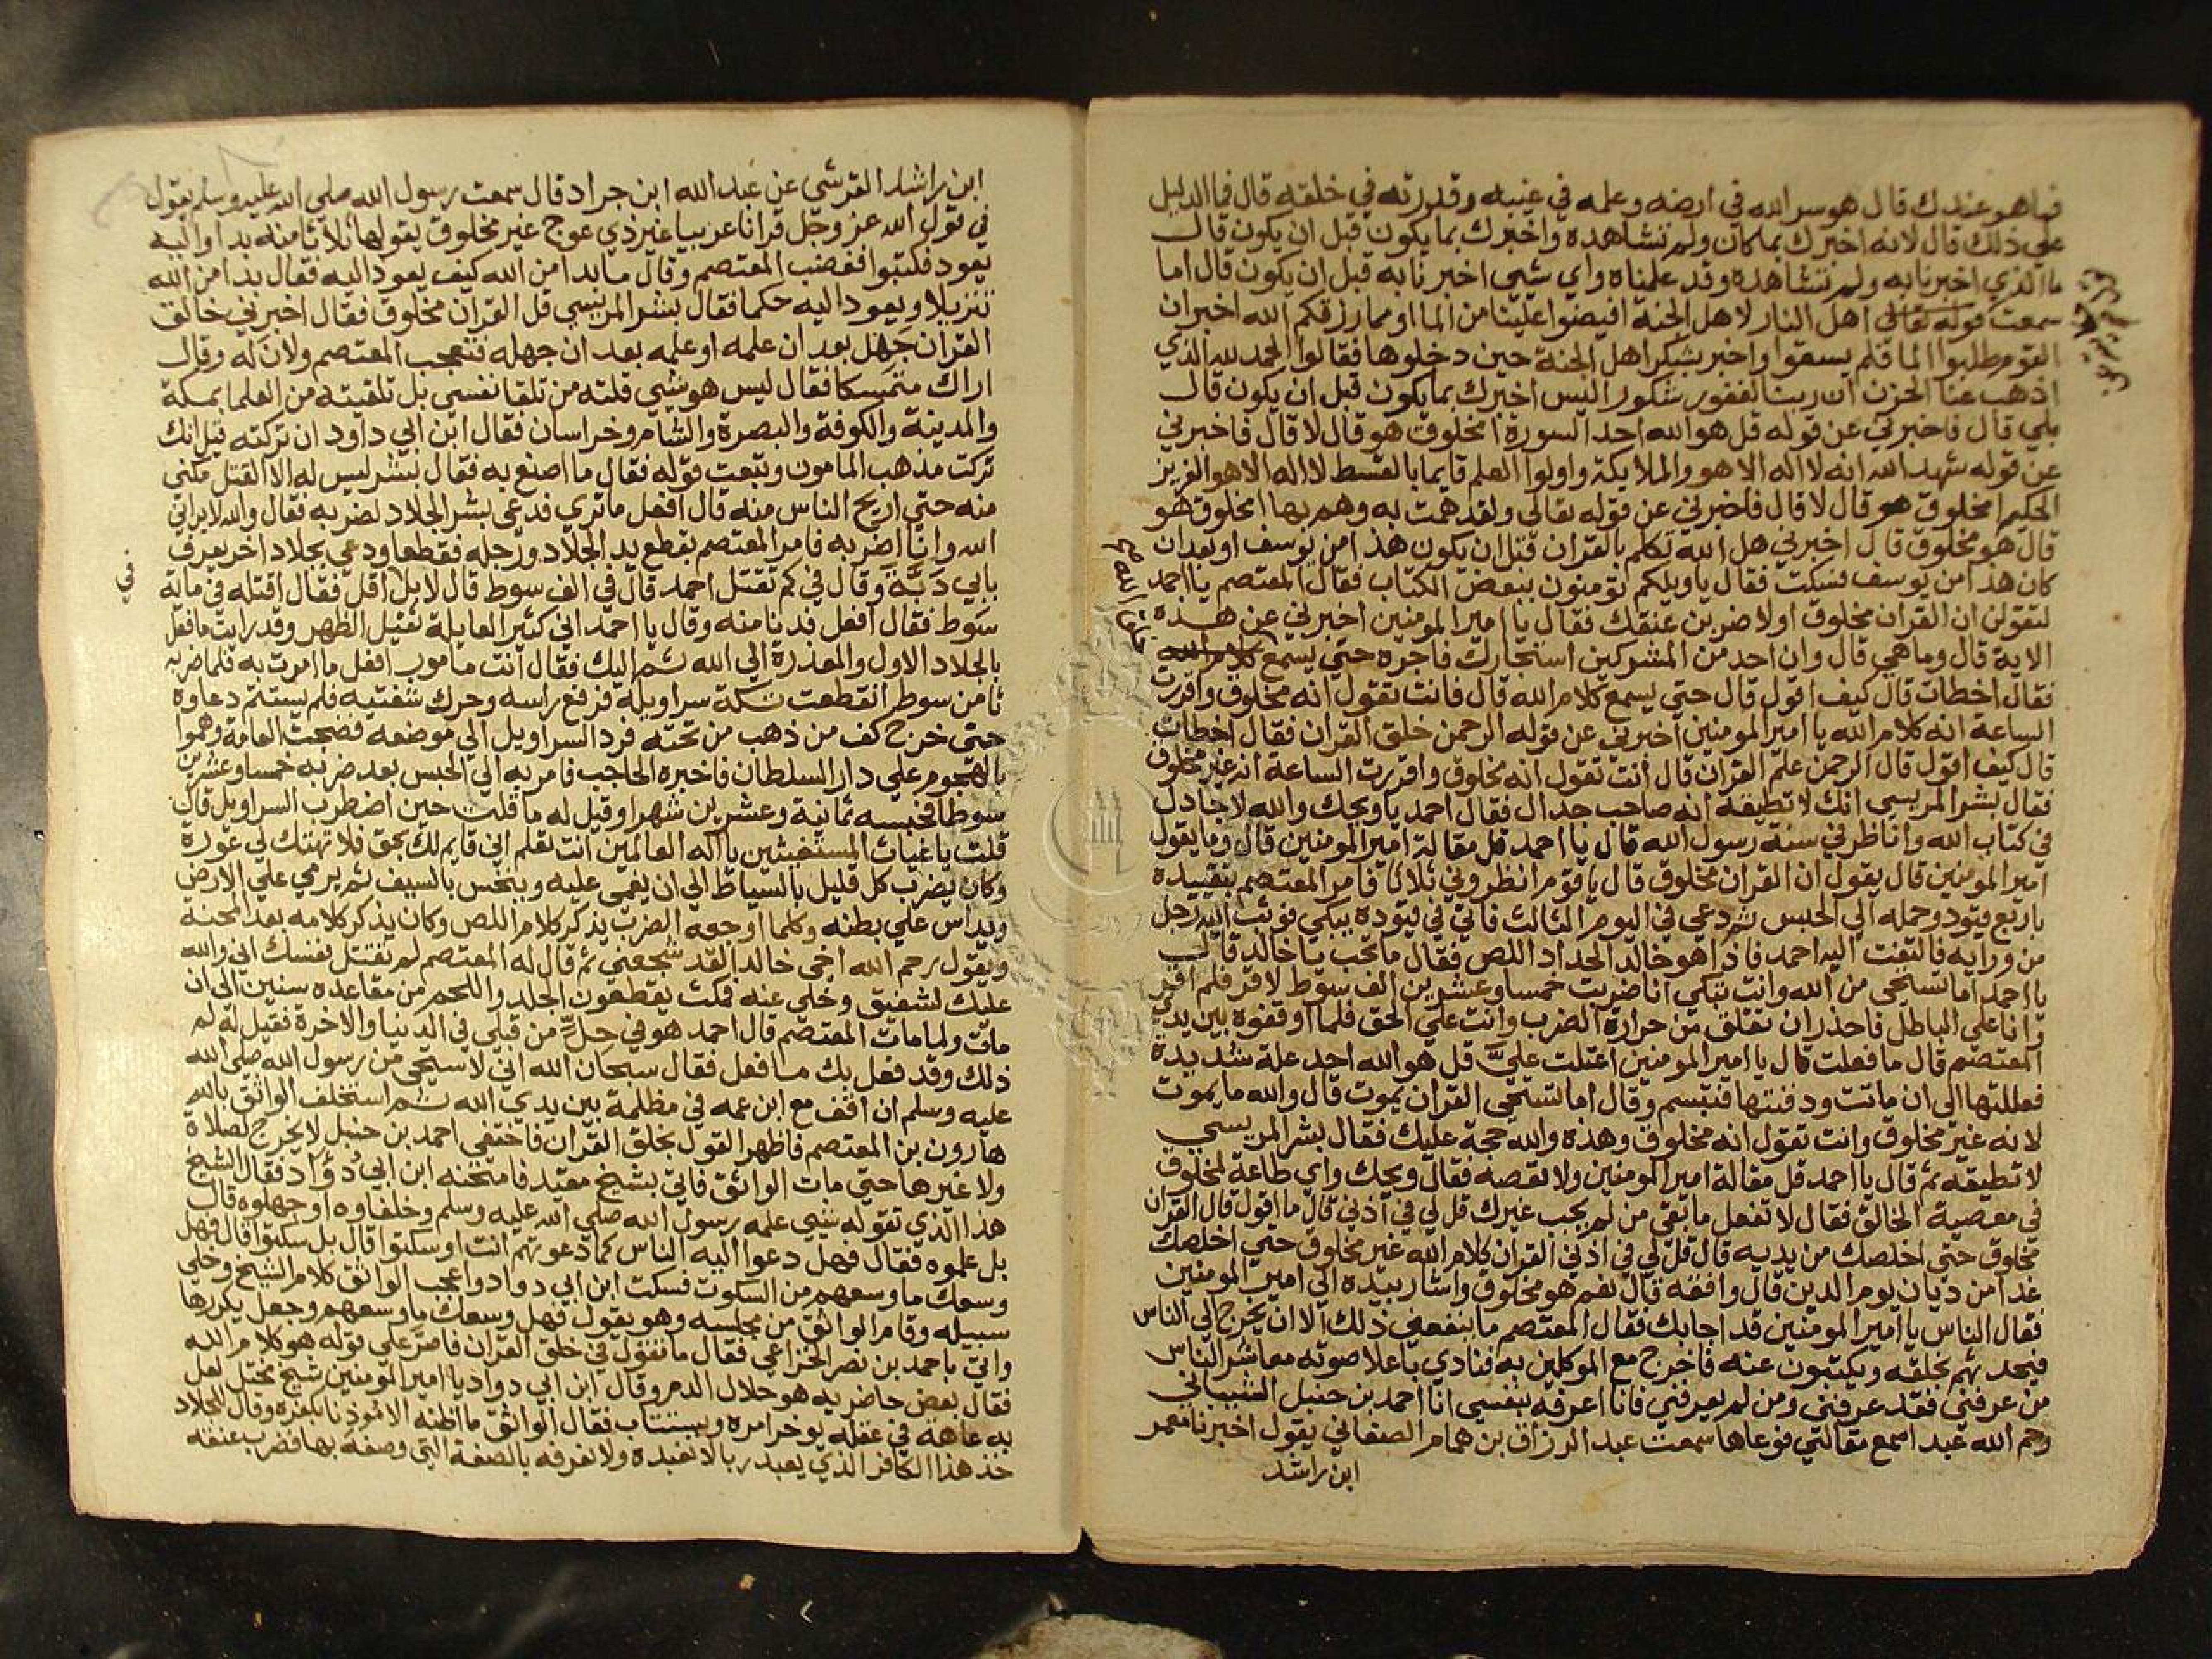 فما هو عندك قال هو سر الله في ارضه وعلمه في غيبه وقدرته في خلقه قال فما الدليل
علي ذلك قال لانه اخبرك بما كان ولم تشاهده واخبرك بما يكون قبل ان يكون قال
ما الذي اخبرنا به ولم نشاهده وقد علمناه واي شي اخبرنا به قبل ان يكون قال اما
سمعت قوله تعالي اهل النار لاهل الجنة افيضوا علينا من الما او مما رزقكم الله اخبر ان
القوم طلبوا الما فلم يسقوا واخبر بشكر اهل الجنة حين دخلوها فقالوا الحمد لله الذي
اذهب عنا الحزن ان ربنا لغفور شكور اليس اخبرك بما يكون قبل ان يكون قال
بلي قال فاخبرني عن قوله قل هو الله احد السورة امخلوق هو قال لا قال فاخبرني
عن قوله شهد الله انه لا اله الا هو والملايكة واولوا العلم قايما بالقسط لا اله الا هو العزيز
الحكيم امخلوق هو قال لا قال فاخبرني عن قوله تعالي ولقد همت به وهم بها امخلوق هو
قال هو مخلوق قال اخبرني هل الله تكلم بالقران قبل ان يكون هذا من يوسف او بعد ان
كان هذا من يوسف فسكت فقال يا ويلكم تومنون ببعض الكتاب فقال المعتصم يا احمد
لتقولن ان القران مخلوق او لاضربن عنقك فقال يا امير المومنين اخبرني عن هذه
الاية قال وما هي قال وان احد من المشركين استجارك فاجره حتي يسمع كلام الله
فقال اخطات قال كيف اقول قال حتي يسمع كلام الله قال فانت تقول انه مخلوق واقررت
الساعة انه كلام الله يا امير المومنين اخبرني عن قوله الرحمن خلق القران فقال اخطات
قال كيف اقول قال الرحمن علم القران قال انت تقول انه مخلوق واقررت الساعة انه غير مخلوق
فقال بشر المريسي انك لا تطيقه انه صاحب جدال فقال احمد يا ويحك والله لاجادل
في كتاب الله واناظر في سنة رسول الله قال يا احمد قل مقالة امير المومنين قال وما يقول
امير المومنين قال يقول ان القران مخلوق قال يا قوم انظروني ثلاثا فامر المعتصم بتقييده
باربع قيود وحمله الي الحبس ثم دعي في اليوم الثالث فاتي في قيوده يبكي فوثب اليه رجل
من ورايه فالتفت اليه احمد فاذا هو خالد الحداد اللص فقال ما تحب يا خالد قال
يا احمد اما تستحي من الله وانت تبكي انا ضربت خمسا وعشرين الف سوط لاقر فلم اقر
وانا علي الباطل فاحذر ان تقلق من حرارة الضرب وانت علي الحق فلما اوقفوه بين يدي
المعتصم قال ما فعلت قال يا امير المومنين اعتلت علي قل هو الله احد علة شديدة
فعللتها الي ان ماتت ودفنتها فتبسم وقال اما تستحي القران يموت قال والله ما يموت
لانه غير مخلوق وانت تقول انه مخلوق وهذه والله حجة عليك فقال بشر المريسي
لا تطيقه ثم قال يا احمد قل مقالة امير المومنين ولا تعصه فقال ويحك واي طاعة لمخلوق
في معصية الخالق فقال لا تفعل ما بقي من لم يجب غيرك قل لي في اذني قال ما اقول قال القران
مخلوق حتي اخلصك من يديه قال قل لي في اذني القران كلام الله غير مخلوق حتي اخلصك
غدا من ديان يوم الدين قال وافقه قال نعم هو مخلوق واشار بيده الي امير المومنين
فقال الناس يا امير المومنين قد اجابك فقال المعتصم ما ينفعني ذلك الا ان يخرج الي الناس
فيحدثهم بخلقه ويكتبون عنه فاخرج مع الموكلين به فنادي باعلا صوته معاشر الناس
من عرفني فقد عرفني ومن لم يعرفني فانا اعرفه بنفسي انا احمد بن حنبل الشيباني
رحم الله عبد اسمع مقالتي فوعاها سمعت عبد الرزاق بن همام الصنعاني يقول اخبرنا معمر
ابن راشد
ابن راشد القرشي عن عبد الله ابن جراد قال سمعت رسول الله صلي الله عليه وسلم يقول
في قول الله عز وجل قرانا عربيا غير ذي عوج غير مخلوق يقولها ثلاثا منه بدا واليه
يعود فكتبوا فغضب المعتصم وقال ما بدا من الله كيف يعود اليه فقال بدا من الله
تنزيلا ويعود اليه حكما فقال بشر المريسي قل القران مخلوق فقال اخبرني خالق
القران جهل بعد ان علمه او علمه بعد ان جهله فتعجب المعتصم ولان له وقال
اراك متمسكا فقال ليس هو شي قلته من تلقا نفسي بل تلقيته من العلما بمكة
والمدينة والكوفة والبصرة والشام وخراسان فقال ابن ابي داود ان تركته قيل انك
تركت مذهب المامون وتبعت قوله فقال ما اصنع به فقال بشر ليس له الا القتل مكني
منه حتي اريح الناس منه قال افعل ما تري فدعي بشر الجلاد لضربه فقال والله لا يراني
الله وانا اضربه فامر المعتصم بقطع يد الجلاد ورجله فقطعا ودعي بجلاد اخر يعرف
بابي دبة وقال في كم تقتل احمد قال في الف سوط قال لا بل اقل فقال اقتله في ماية
في
سوط فقال افعل فدنا منه وقال يا احمد اني كثير العايلة ثقيل الظهر وقد رايت ما فعل
بالجلاد الاول والمعذرة الي الله ثم اليك فقال انت مامور افعل ما امرت به فلما ضربه
ثامن سوط انقطعت تكة سراويله فرفع راسه وحرك شفتيه فلم يستتم دعاوه
حتي خرج كف من ذهب من تحته فرد السراويل الي موضعه فضجت العامة وهموا
بالهجوم علي دار السلطان فاخبره الحاجب فامر به الي الحبس بعد ضربه خمسا وعشرين
سوطا فحبسه ثمانية وعشرين شهرا وقيل له ما قلت حين اضطرب السراويل قال
قلت يا غياث المستغيثين يا اله العالمين انت تعلم اني قايم لك بحق فلا تهتك لي عورة
وكان يضرب كل قليل بالسياط الي ان يغمي عليه وينخس بالسيف ثم يرمي علي الارض
ويداس علي بطنه وكلما اوجعه الضرب يذكر كلام اللص وكان يذكر كلامه بعد المحنة
ويقول رحم الله اخي خالدا لقد شجعني ثم قال له المعتصم لم تقتل نفسك اني والله
عليك لشفيق وخلي عنه فمكث يقطعون الجلد واللحم من مقاعده سنين الي ان
مات ولما مات المعتصم قال احمد هو في حل من قبلي في الدنيا والاخرة فقيل له لم
ذلك وقد فعل بك ما فعل فقال سبحان الله اني لاستحي من رسول الله صلي الله
عليه وسلم ان اقف مع ابن عمه في مظلمة بين يدي الله ثم استخلف الواثق بالله
هارون بن المعتصم فاظهر القول بخلق القران فاختفي احمد بن حنبل لا يخرج لصلاة
ولا غيرها حتي مات الواثق فاتي بشيخ مقيد فامتحنه ابن ابي دؤاد فقال الشيخ
هذا الذي تقوله شي علمه رسول الله صلي الله عليه وسلم وخلفاوه او جهلوه قال
بل علموه فقال فهل دعوا اليه الناس كما دعوتهم انت او سكتوا قال بل سكتوا قال فهل
وسعك ما وسعهم من السكوت فسكت ابن ابي دواد واعجب الواثق كلام الشيخ وخلي
سبيله وقام الواثق من مجلسه وهو يقول فهل وسعك ما وسعهم وجعل يكررها
واتي باحمد بن نصر الخزاعي فقال ما تقول في خلق القران فاصر علي قوله هو كلام الله
فقال بعض حاضريه هو حلال الدم وقال ابن ابي دواد يا امير المومنين شيخ مختل لعل
به عاهة في عقله يوخر امره ويستتاب فقال الواثق ما اظنه الا موذنا بكفره وقال للجلاد
خذ هذا الكافر الذي يعبد ربا لا نعبده ولا نعرفه بالصفة التي وصفه بها فضرب عنقه